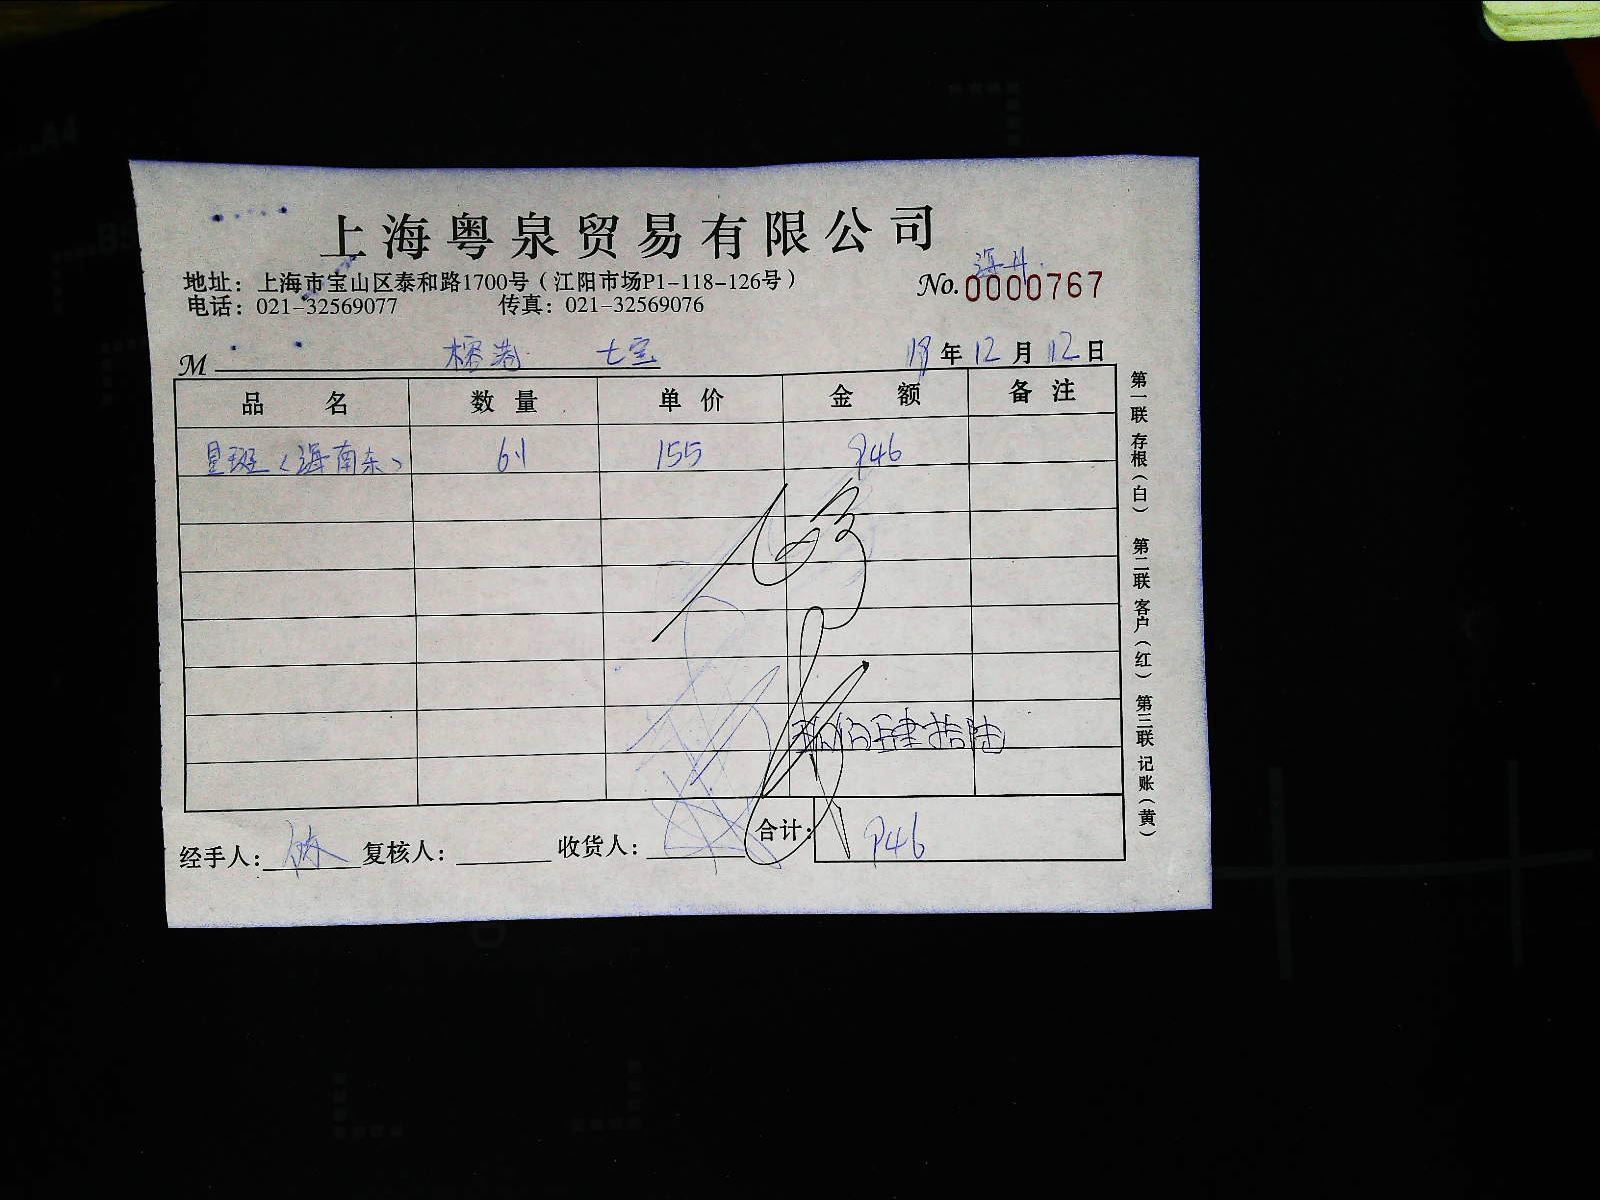 上海粤泉贸易有限公司
地址：上海市宝山区泰和路1700号（江阳市场P1-118-126号）
电话：021-32569077 传真：021-32569076
No.0000767
M 榕港 七宝 19年12月12日
品名 数量 单价 金额 备注
星斑（海南东） 6.1 155 946
玖佰肆拾陆
合计： 946
经手人： 复核人： 收货人：
第一联 存根（白） 第二联 客户（红） 第三联 记账（黄）